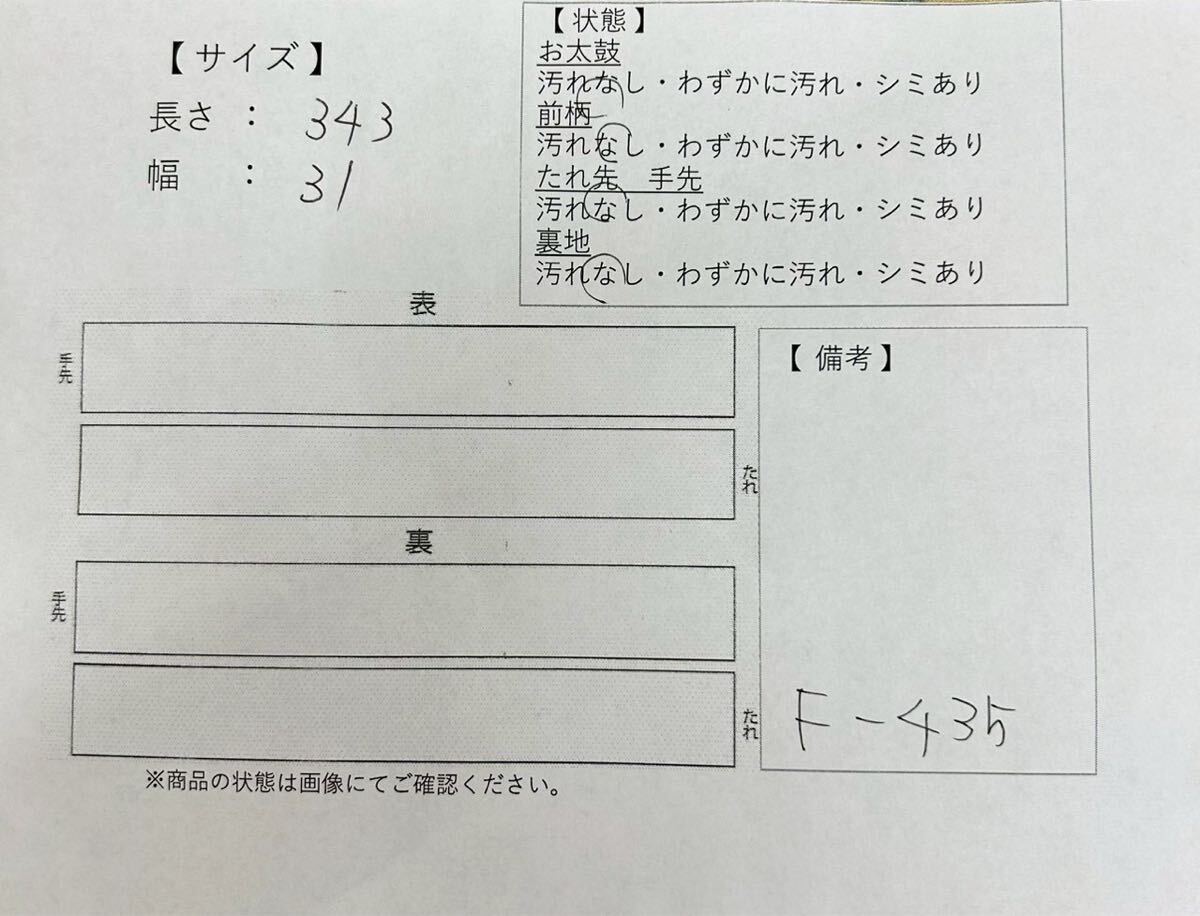 【 サイズ 】
長さ : 343
幅 : 31
【 状態 】
お太鼓
汚れなし・わずかに汚れ・シミあり
前柄
汚れなし・わずかに汚れ・シミあり
たれ先 手先
汚れなし・わずかに汚れ・シミあり
裏地
汚れなし・わずかに汚れ・シミあり
表
手先
たれ
裏
手先
たれ
【 備考 】
F-435
※商品の状態は画像にてご確認ください。